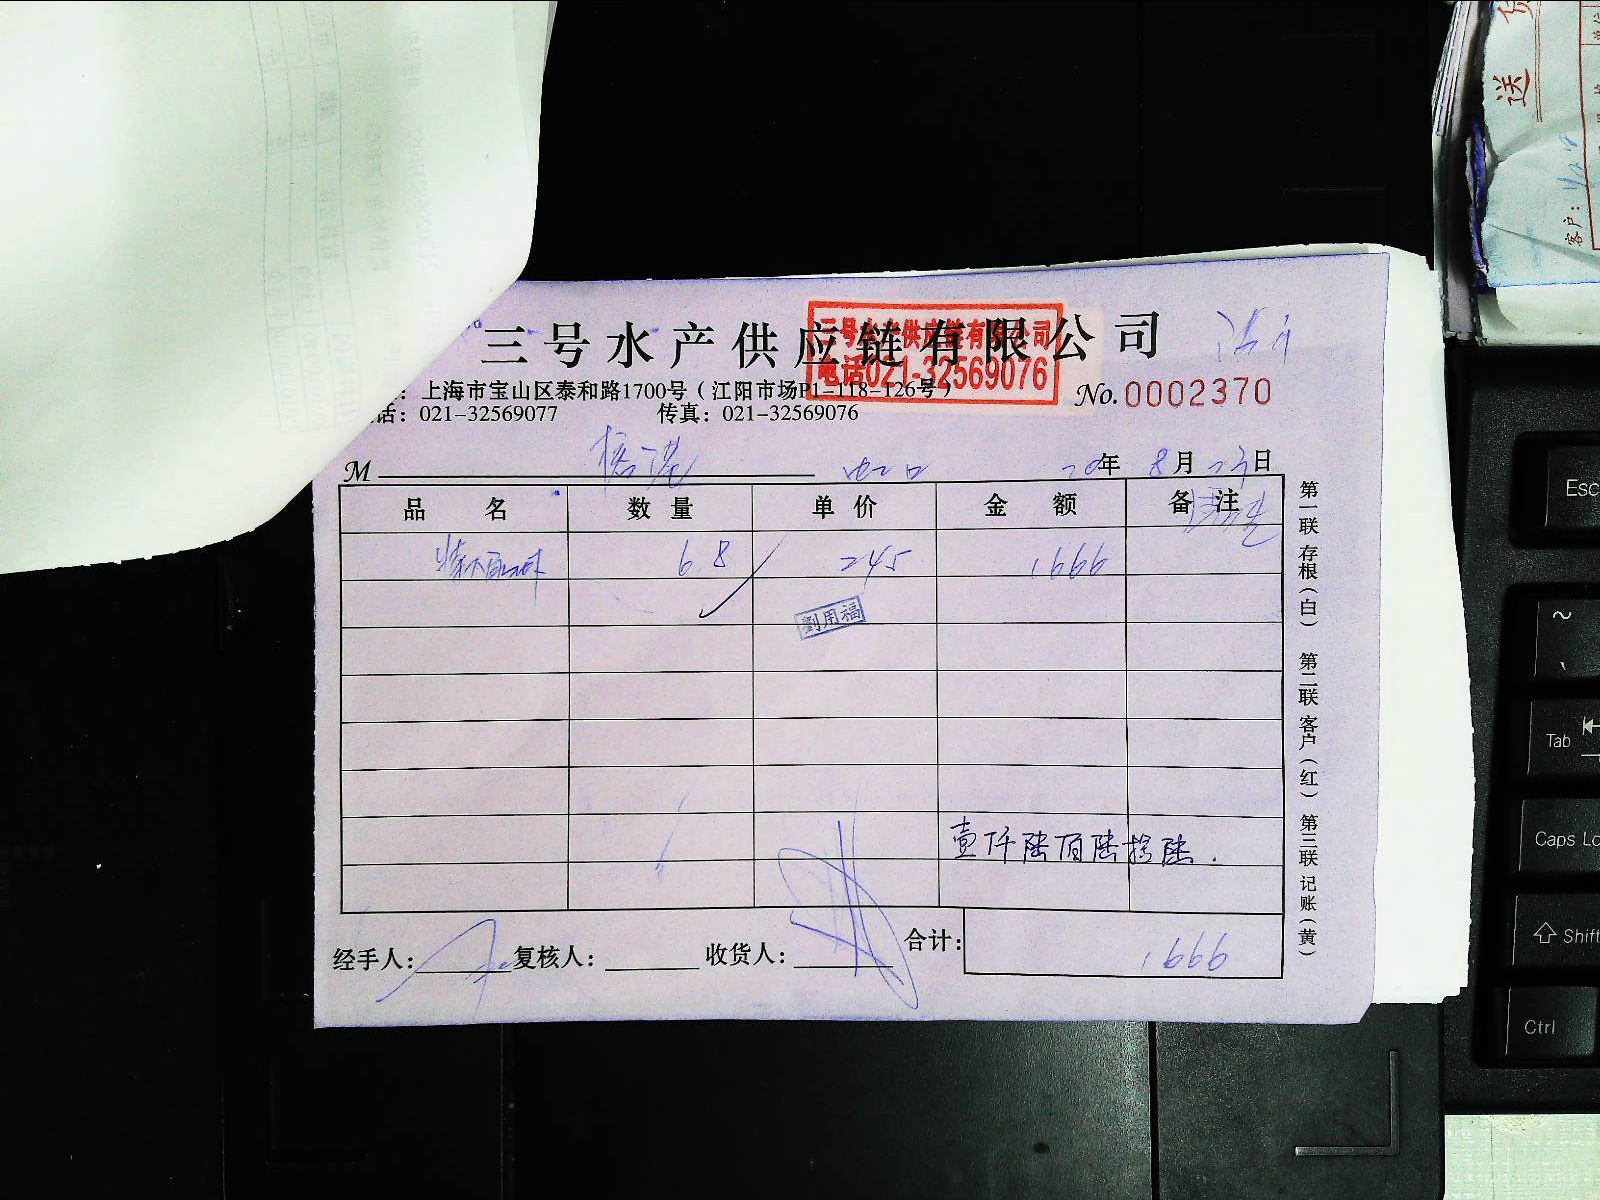 三号水产供应链有限公司
三号水产供应链有限公司
电话021-32569076
：上海市宝山区泰和路1700号（江阳市场P1-118-126号）
话：021-32569077 传真：021-32569076
No.0002370
M 20年 8月23日
品名 数量 单价 金额 备注
6.8 245 1666
劉用福
壹仟陆佰陆拾陆.
经手人： 复核人： 收货人： 合计： 1666
第一联 存根（白） 第二联 客户（红） 第三联 记账（黄）
送
客户：
Esc
~
Tab
Caps Lo
Shift
Ctrl